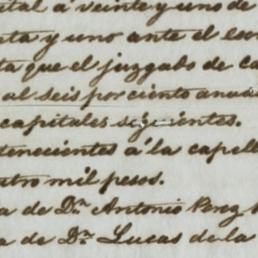 ital á veinte y uno de
eta y uno ante el es
ta que el juzgado de ca
al seis por ciento anua
capitales siguientes.
tenecientes á la capell
atro mil pesos.
a de Dn. Antonio Perez
a de Dn. Lucas de la